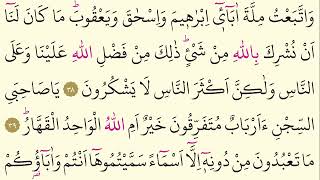 وَاتَّبَعْتُ مِلَّةَ اٰبَٓاء۪ٓي اِبْرٰه۪يمَ وَاِسْحٰقَ وَيَعْقُوبَۜ مَا كَانَ لَنَٓا
اَنْ نُشْرِكَ بِاللّٰهِ مِنْ شَيْءٍۜ ذٰلِكَ مِنْ فَضْلِ اللّٰهِ عَلَيْنَا وَعَلَى
النَّاسِ وَلٰكِنَّ اَكْثَرَ النَّاسِ لَا يَشْكُرُونَ ﴿٣٨﴾ يَاصَاحِبَيِ
السِّجْنِ ءَاَرْبَابٌ مُتَفَرِّقُونَ خَيْرٌ اَمِ اللّٰهُ الْوَاحِدُ الْقَهَّارُۜ ﴿٣٩﴾
مَا تَعْبُدُونَ مِنْ دُونِه۪ٓ اِلَّٓا اَسْمَٓاءً سَمَّيْتُمُوهَٓا اَنْتُمْ وَاٰبَٓاؤُ۬كُمْ